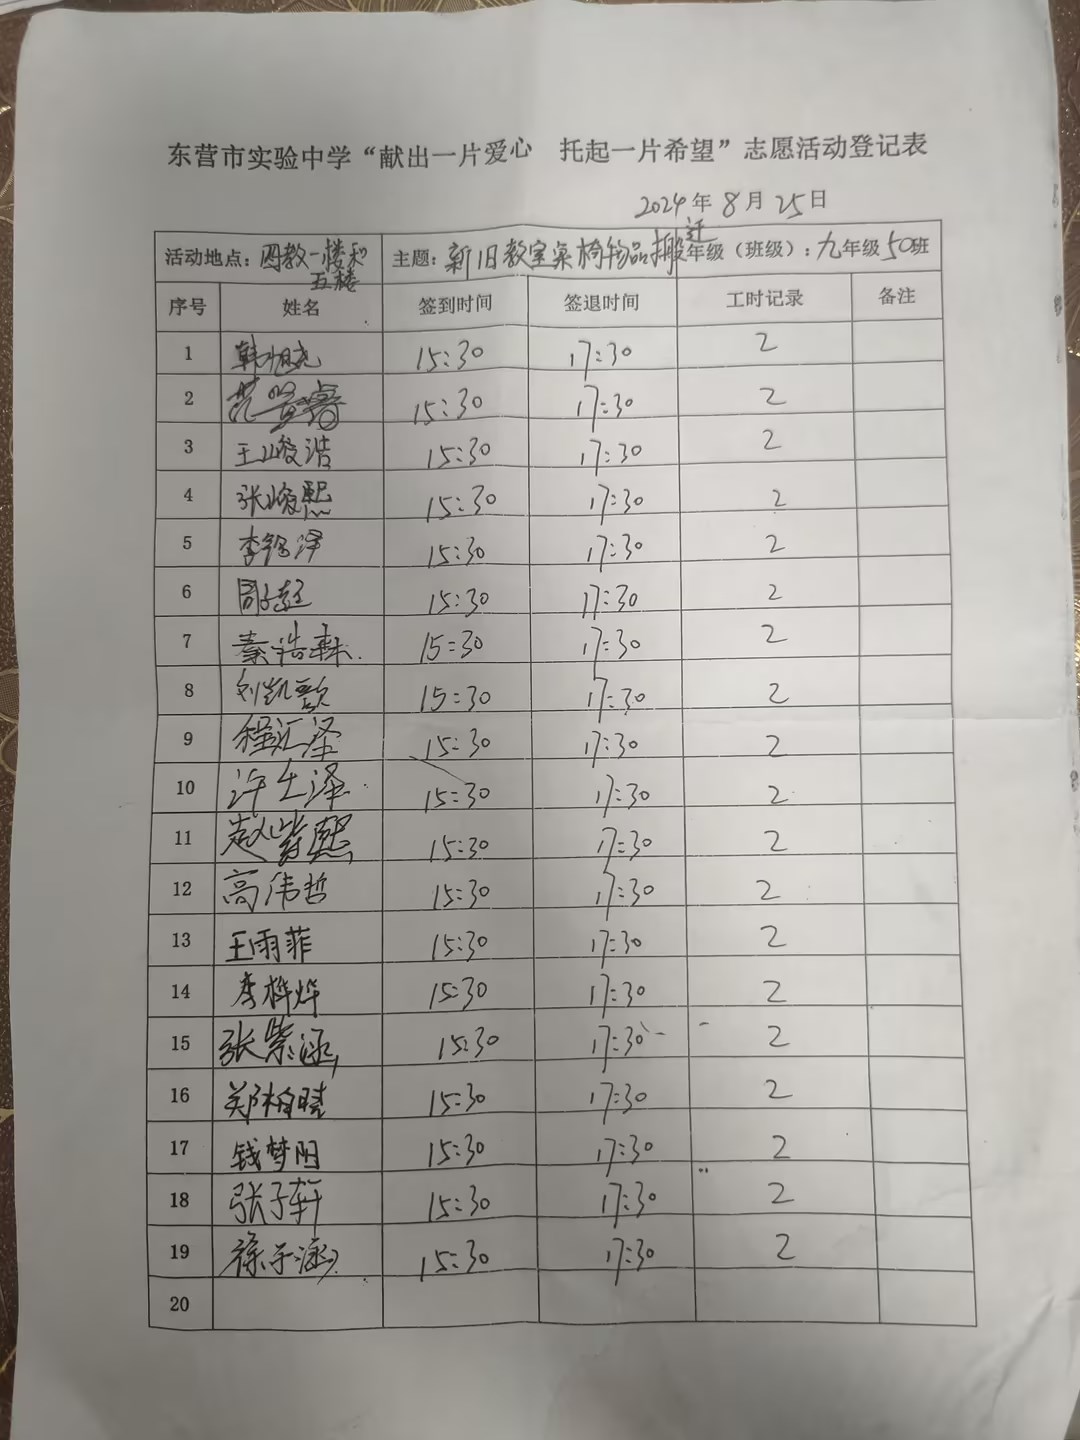 东营市实验中学“献出一片爱心 托起一片希望”志愿活动登记表
2024年8月25日
活动地点：四教一楼和五楼 主题：新旧教室桌椅物品搬迁 年级（班级）：九年级50班
序号 姓名 签到时间 签退时间 工时记录 备注
1 韩旭尧 15:30 17:30 2
2 范 睿 15:30 17:30 2
3 王峻浩 15:30 17:30 2
4 张峻熙 15:30 17:30 2
5 李铭泽 15:30 17:30 2
6 周子 15:30 17:30 2
7 秦浩轩 15:30 17:30 2
8 刘凯歌 15:30 17:30 2
9 程汇泽 15:30 17:30 2
10 许士泽 15:30 17:30 2
11 赵 熙 15:30 17:30 2
12 高伟哲 15:30 17:30 2
13 王雨菲 15:30 17:30 2
14 李桦烨 15:30 17:30 2
15 张紫涵 15:30 17:30 2
16 郑柏晓 15:30 17:30 2
17 钱梦阳 15:30 17:30 2
18 张子轩 15:30 17:30 2
19 徐子涵 15:30 17:30 2
20